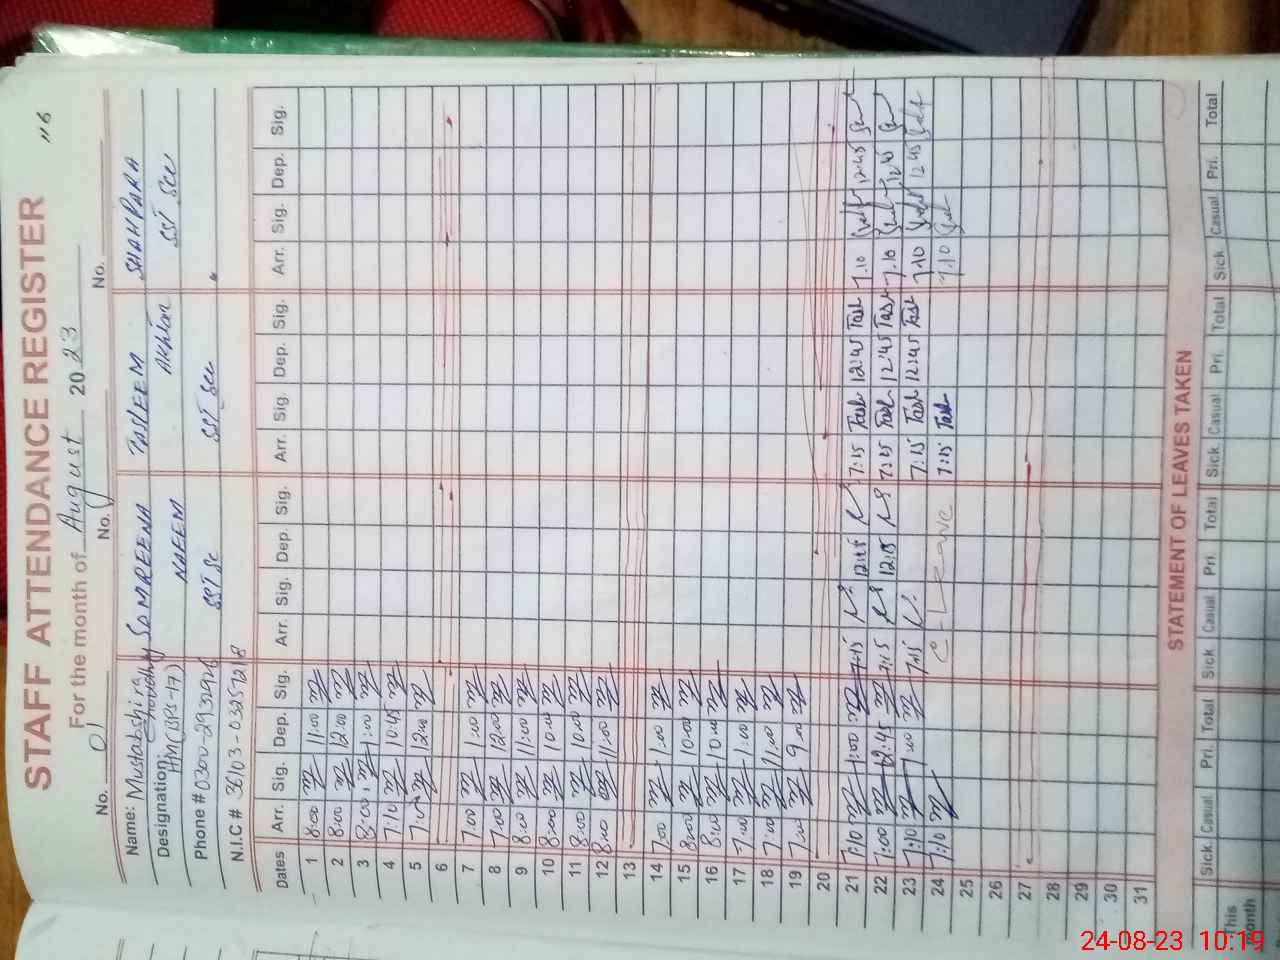 116
STAFF ATTENDANCE REGISTER
For the month of August 2023
No. 01 No. No.
Name: Mustabshira Choudhry SAMREENA NAEEM TASLEEM Akhtar SHAH PARA
Designation: HM (BPS-17) SST Sc SST Sci SST Sci
Phone # 0300-2932926
N.I.C # 36103-0325721-8
Dates Arr. Sig. Dep. Sig. Arr. Sig. Dep. Sig. Arr. Sig. Dep. Sig. Arr. Sig. Dep. Sig.
1 8:00 11:00
2 8:00 12:00
3 8:00 1:00
4 7:10 10:45
5 7:00 12:00
6
7 7:00 1:00
8 7:00 12:00
9 8:00 11:00
10 8:00 10:00
11 8:00 10:00
12 8:00 11:00
13
14 7:00 1:00
15 8:00 10:00
16 8:00 10:00
17 7:00 1:00
18 7:00 11:00
19 7:00 9:00
20
21 7:10 1:00 7:15 12:45 7:15 Tasl 12:45 Tasl 7.10 12:45
22 7:00 12:45 7:15 12:15 7:15 Tasl 12:45 Tasl 7.10 12:45
23 7:10 1:00 7:15 C-Leave 7:15 Tasl 12:45 Tasl 7.10 12 45
24 7:10 7:15 Tasl 7:10
25
26
27
28
29
30
31
STATEMENT OF LEAVES TAKEN
Sick Casual Pri. Total Sick Casual Pri. Total Sick Casual Pri. Total Sick Casual Pri. Total
This
month
24-08-23 10:19